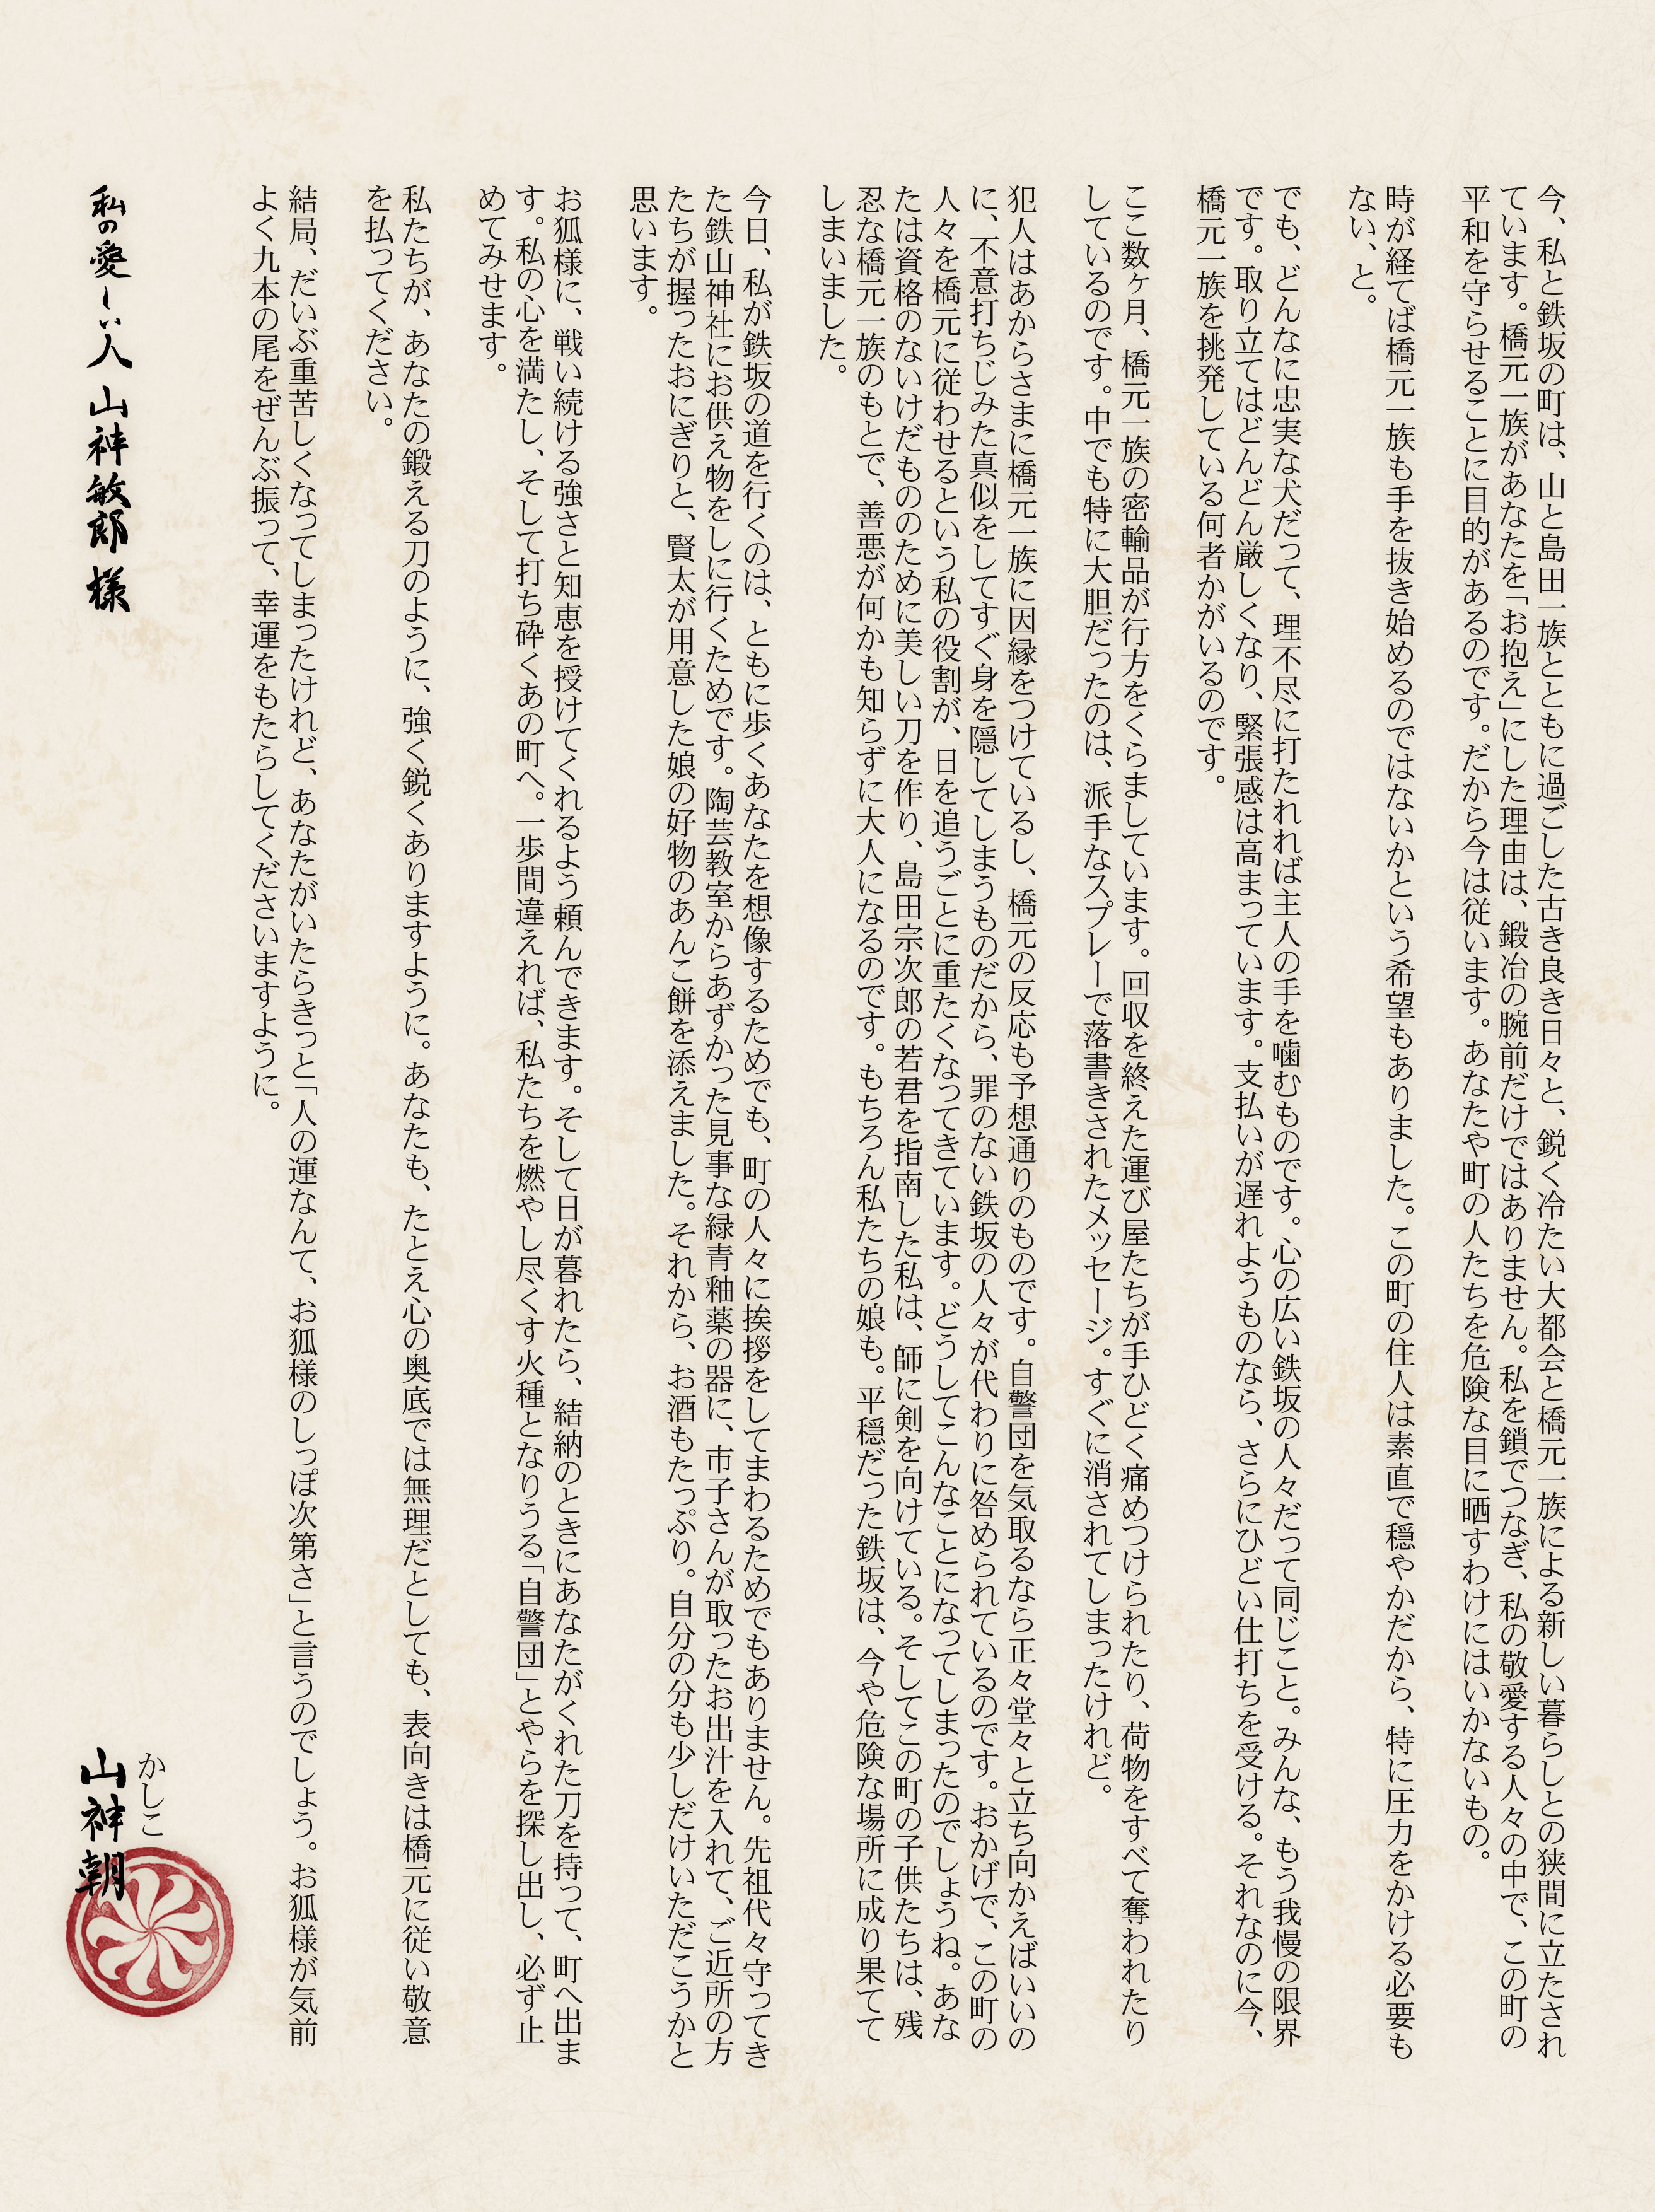 今、私と鉄坂の町は、山と島田一族とともに過ごした古き良き日々と、鋭く冷たい大都会と橋元一族による新しい暮らしとの狭間に立たされ
ています。橋元一族があなたを「お抱え」にした理由は、鍛冶の腕前だけではありません。私を鎖でつなぎ、私の敬愛する人々の中で、この町の
平和を守らせることに目的があるのです。だから今は従います。あなたや町の人たちを危険な目に晒すわけにはいかないもの。
時が経てば橋元一族も手を抜き始めるのではないかという希望もありました。この町の住人は素直で穏やかだから、特に圧力をかける必要も
ない、と。
でも、どんなに忠実な犬だって、理不尽に打たれれば主人の手を噛むものです。心の広い鉄坂の人々だって同じこと。みんな、もう我慢の限界
です。取り立てはどんどん厳しくなり、緊張感は高まっています。支払いが遅れようものなら、さらにひどい仕打ちを受ける。それなのに今、
橋元一族を挑発している何者かがいるのです。
ここ数ヶ月、橋元一族の密輸品が行方をくらましています。回収を終えた運び屋たちが手ひどく痛めつけられたり、荷物をすべて奪われたり
しているのです。中でも特に大胆だったのは、派手なスプレーで落書きされたメッセージ。すぐに消されてしまったけれど。
犯人はあからさまに橋元一族に因縁をつけているし、橋元の反応も予想通りのものです。自警団を気取るなら正々堂々と立ち向かえばいいの
に、不意打ちじみた真似をしてすぐ身を隠してしまうものだから、罪のない鉄坂の人々が代わりに咎められているのです。おかげで、この町の
人々を橋元に従わせるという私の役割が、日を追うごとに重たくなってきています。どうしてこんなことになってしまったのでしょうね。あな
たは資格のないけだもののために美しい刀を作り、島田宗次郎の若君を指南した私は、師に剣を向けている。そしてこの町の子供たちは、残
忍な橋元一族のもとで、善悪が何かも知らずに大人になるのです。もちろん私たちの娘も。平穏だった鉄坂は、今や危険な場所に成り果てて
しまいました。
今日、私が鉄坂の道を行くのは、ともに歩くあなたを想像するためでも、町の人々に挨拶をしてまわるためでもありません。先祖代々守ってき
た鉄山神社にお供え物をしに行くためです。陶芸教室からあずかった見事な緑青釉薬の器に、市子さんが取ったお出汁を入れて、ご近所の方
たちが握ったおにぎりと、賢太が用意した娘の好物のあんこ餅を添えました。それから、お酒もたっぷり。自分の分も少しだけいただこうかと
思います。
お狐様に、戦い続ける強さと知恵を授けてくれるよう頼んできます。そして日が暮れたら、結納のときにあなたがくれた刀を持って、町へ出ま
す。私の心を満たし、そして打ち砕くあの町へ。一歩間違えれば、私たちを燃やし尽くす火種となりうる「自警団」とやらを探し出し、必ず止
めてみせます。
私たちが、あなたの鍛える刀のように、強く鋭くありますように。あなたも、たとえ心の奥底では無理だとしても、表向きは橋元に従い敬意
を払ってください。
結局、だいぶ重苦しくなってしまったけれど、あなたがいたらきっと「人の運なんて、お狐様のしっぽ次第さ」と言うのでしょう。お狐様が気前
よく九本の尾をぜんぶ振って、幸運をもたらしてくださいますように。
かしこ
山神朝
私の愛しい人 山神敏郎 様